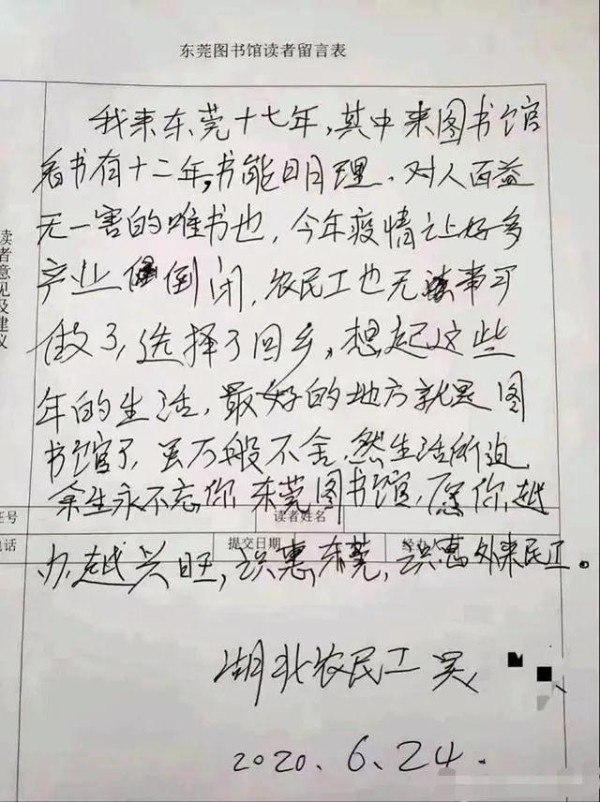 东莞图书馆读者留言表
我来东莞十七年，其中来图书馆
看书有十二年，书能明理、对人百益
无一害的唯书也，今年疫情让好多
产业倒闭，农民工也无事可
做了，选择了回乡。想起这些
年的生活，最好的地方就是图
书馆了，虽万般不舍，然生活所迫
余生永不忘你，东莞图书馆，愿你越
办越兴旺，识惠东莞，识惠外来民工。
读者意见及建议
证号
读者姓名
电话
提交日期
经办
湖北农民工 吴
2020.6.24.